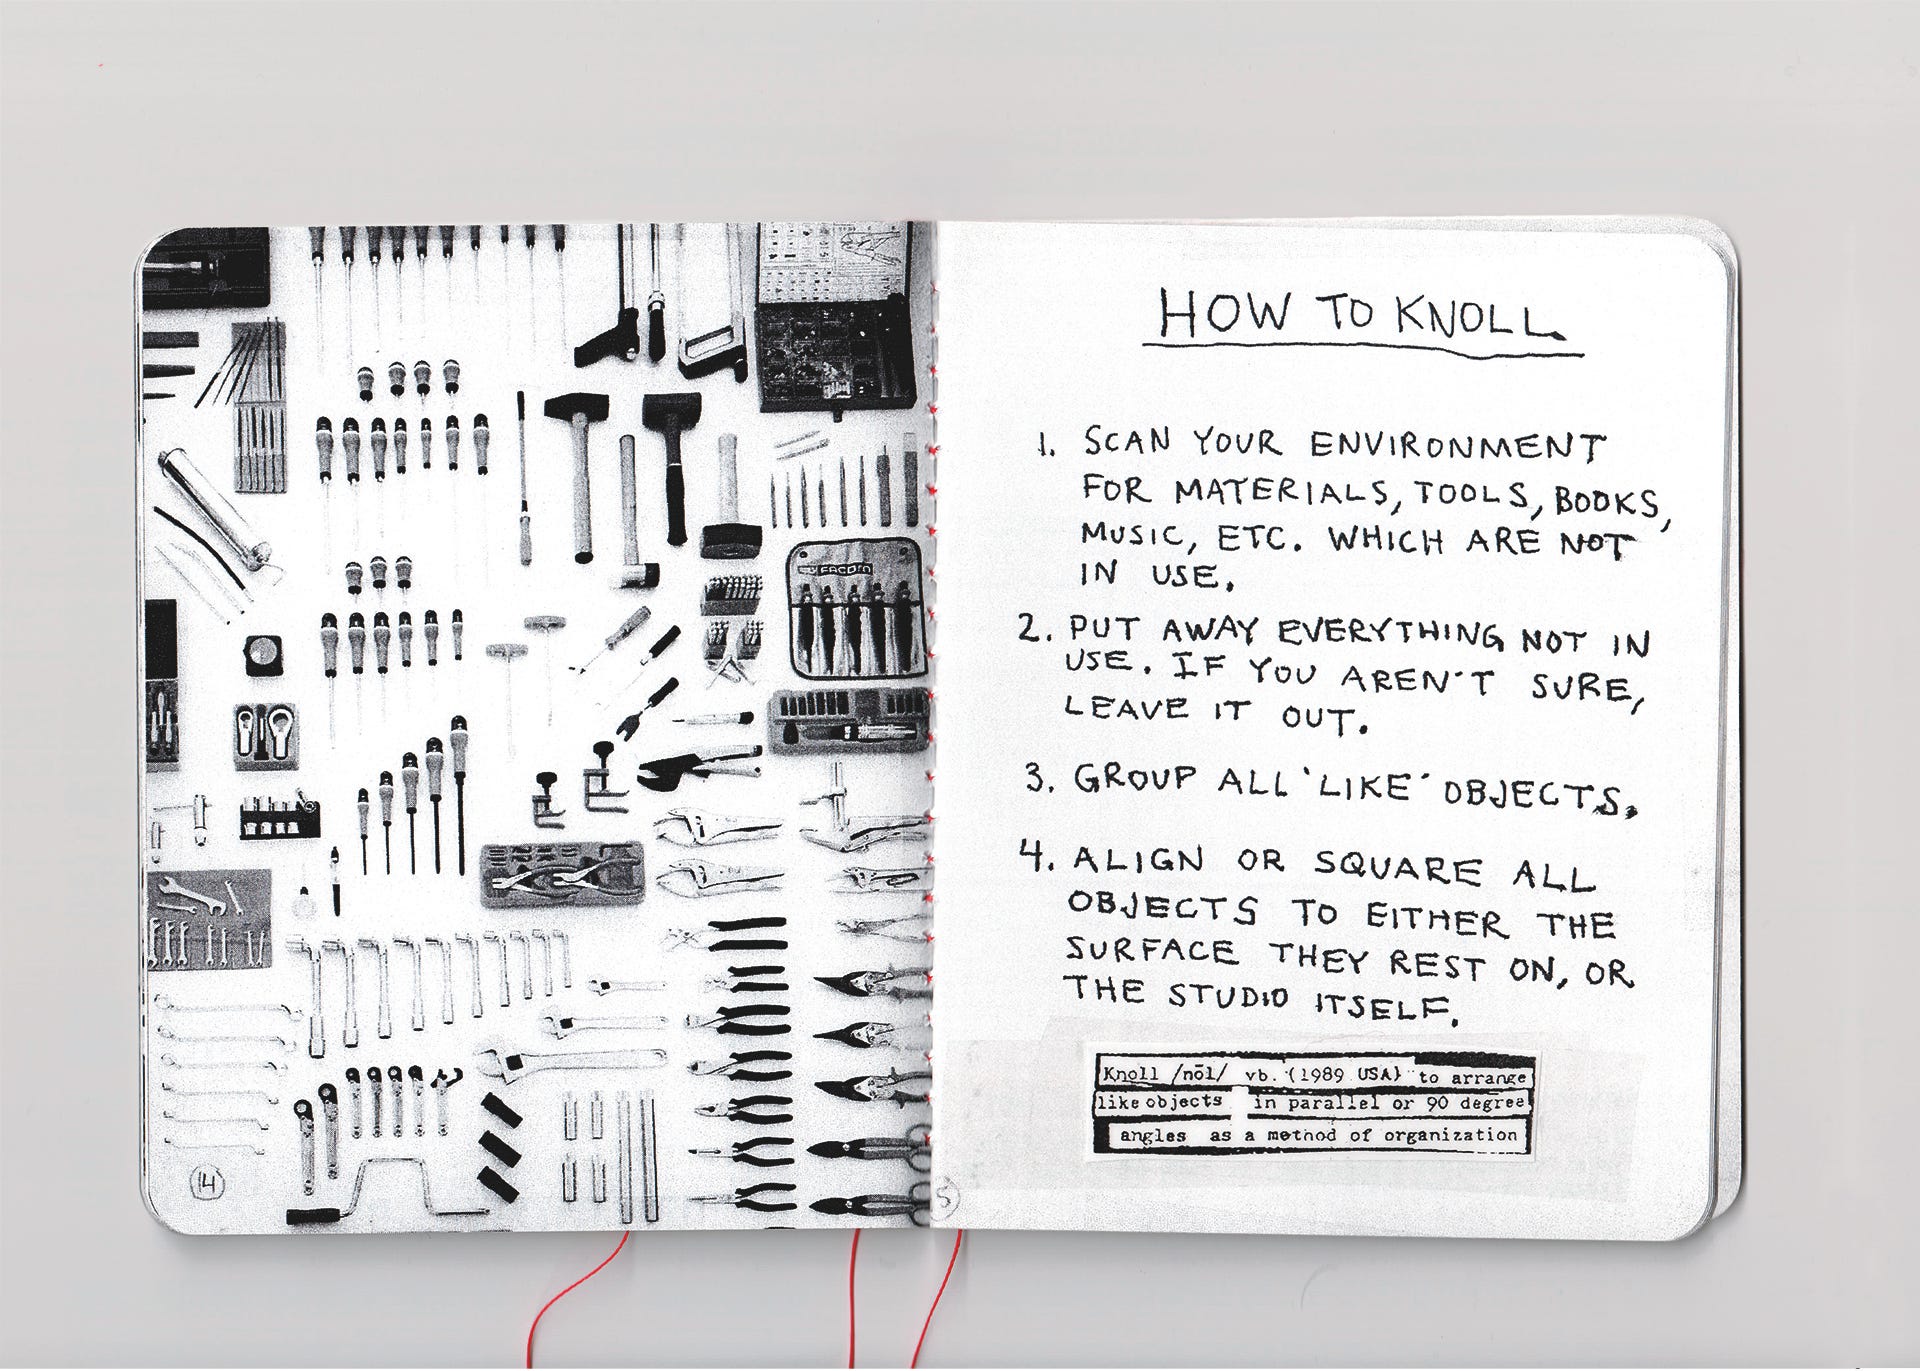 FACOM
14
HOW TO KNOLL
1. SCAN YOUR ENVIRONMENT
FOR MATERIALS, TOOLS, BOOKS,
MUSIC, ETC. WHICH ARE NOT
IN USE.
2. PUT AWAY EVERYTHING NOT IN
USE. IF YOU AREN'T SURE,
LEAVE IT OUT.
3. GROUP ALL 'LIKE' OBJECTS.
4. ALIGN OR SQUARE ALL
OBJECTS TO EITHER THE
SURFACE THEY REST ON, OR
THE STUDIO ITSELF.
Knoll /nōl/ vb. (1989 USA) to arrange
like objects in parallel or 90 degree
angles as a method of organization
5